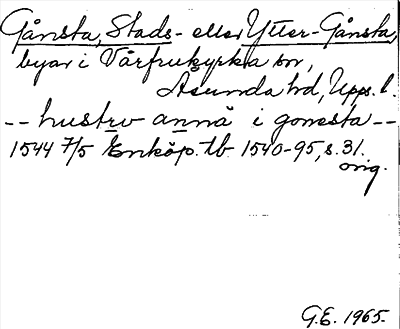 Gånsta, Stads- eller Ytter-Gånsta,
byar i Vårfrukyrka sn,
Åsunda hd, Upps. l.
-- hustrv anna i gonesta --
1544 7/5 Enköp. tb 1540-95, s. 31.
orig.
G.E. 1965.